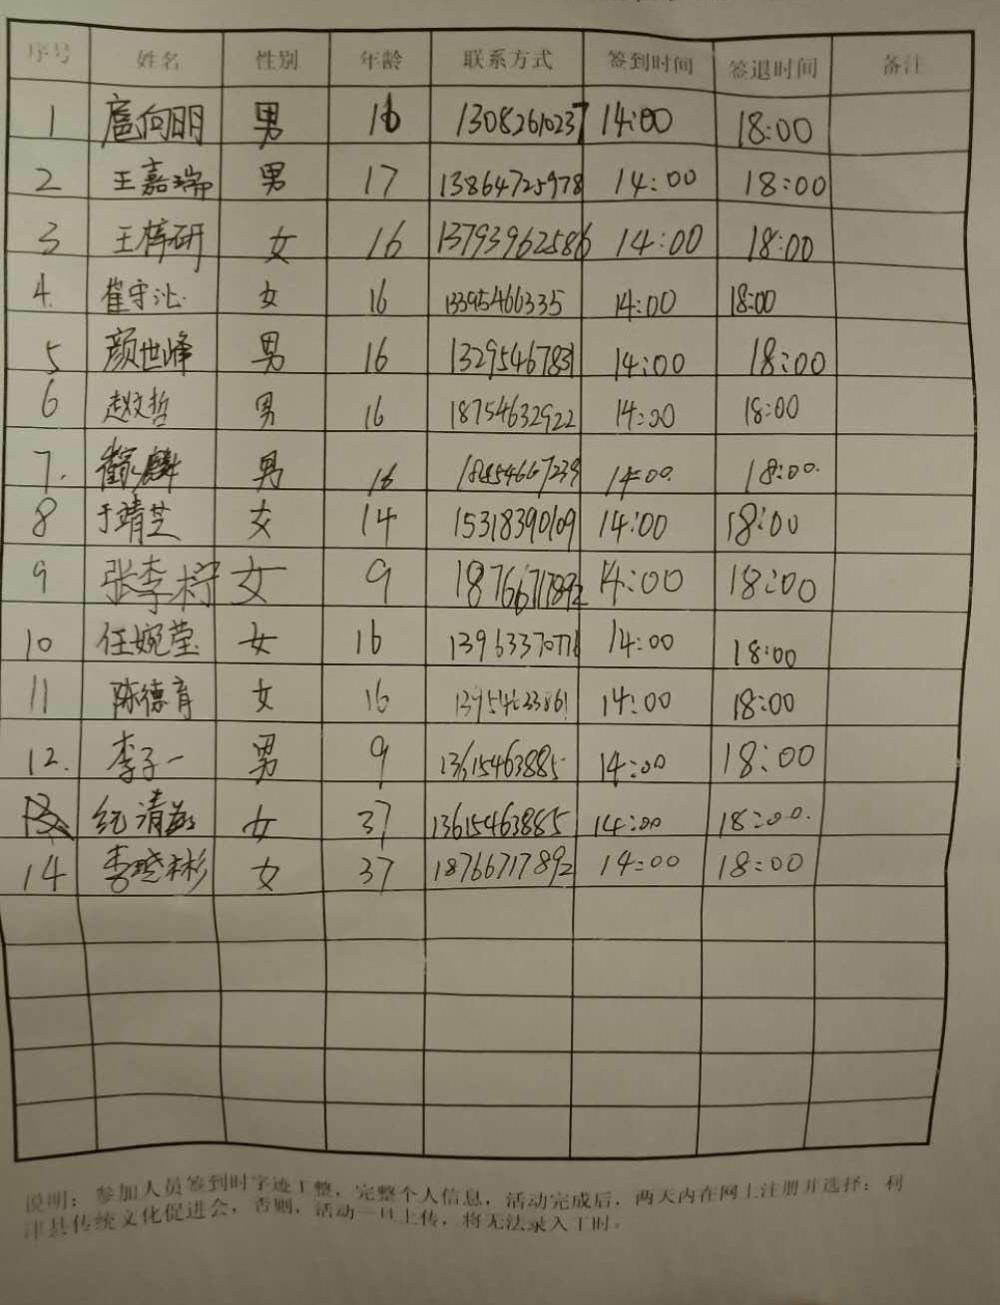 序号 姓名 性别 年龄 联系方式 签到时间 签退时间 备注
1 扈向明 男 16 13082610237 14:00 18:00
2 王嘉瑞 男 17 13864725978 14:00 18:00
3 王梓研 女 16 13793962586 14:00 18:00
4. 崔守沁 女 16 13395466335 14:00 18:00
5 颜世峰 男 16 13295467831 14:00 18:00
6 赵文哲 男 16 18754632922 14:00 18:00
7. 男 16 14:00 18:00.
8 于靖芝 女 14 15318390109 14:00 18:00
9 张李梓 女 9 18766717892 14:00 18:00
10 任婉莹 女 16 14:00 18:00
11 陈德育 女 16 13954623861 14:00 18:00
12. 李子一 男 9 13615463885 14:00 18:00
13 纪清 女 37 13615463885 14:00 18:00.
14 李晓彬 女 37 18766717892 14:00 18:00
说明：参加人员签到时字迹工整，完整个人信息，活动完成后，两天内在网上注册并选择：利
津县传统文化促进会，否则，活动一旦上传，将无法录入工时。